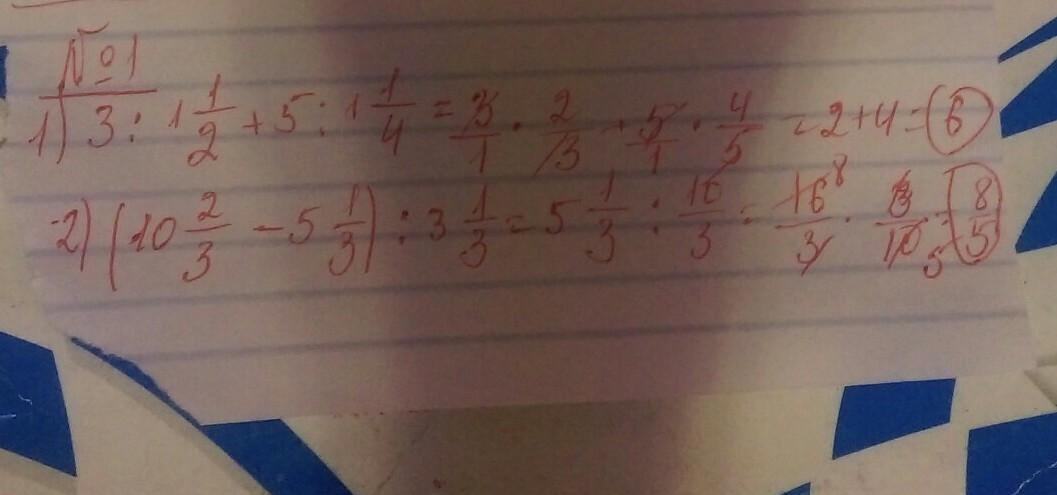 №1
1) 3 : 1 1/2 + 5 : 1 1/4 = 3/1 · 2/3 + 5/1 · 4/5 = 2 + 4 = 6
2) (10 2/3 - 5 1/3) : 3 1/3 = 5 1/3 : 10/3 = 16 8/3 · 3/10 5 = 8/5